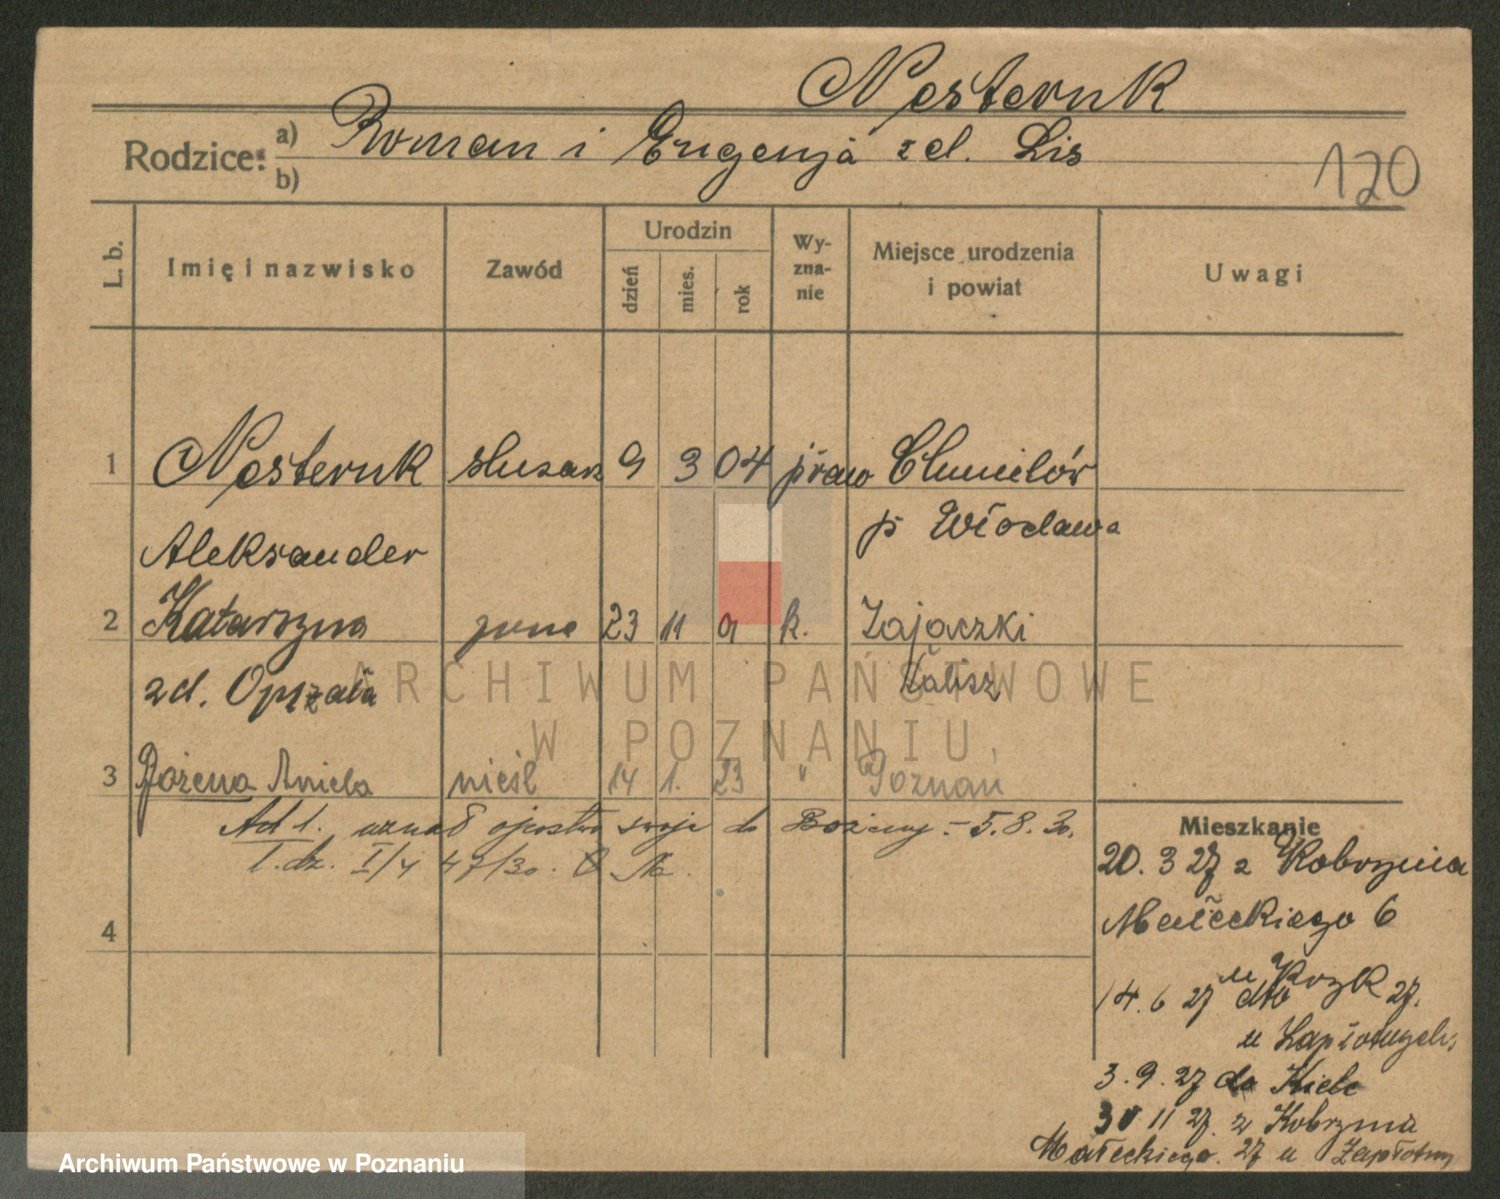 Nesteruk
Rodzice: a) Roman i Eugenja zd. Lis
b)
120
L. b. Imię i nazwisko Zawód Urodzin dzień mies. rok Wyznanie Miejsce urodzenia i powiat Uwagi
1 Nesteruk ślusarz 9 3 04 praw
Aleksander p Włodawa
2 Katarzyna żona 23 11 k. Zajączki
zd. Kalisz
3 Bożena Aniela nieśl 14 1. 23 " Poznań
Ad 1. uznał ojcostwo swoje do Bożeny. - 5.8.30.
l. dz. I/4 47/30.
4
Mieszkanie
20. 3 27 z Kobrynia
Małeckiego 6
u
14. 6 27 dto 27.
u Zapłotnych
3. 9. 27 do Kielc
30 11 27. z Kobrynia
Małeckiego. 27 u Zapłotny
ARCHIWUM PAŃSTWOWE
W POZNANIU
Archiwum Państwowe w Poznaniu